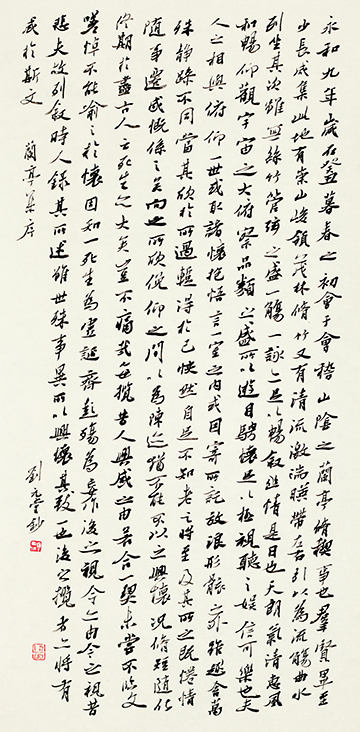 永和九年歲在癸暮春之初會于會稽山陰之蘭亭脩禊事也羣賢畢至
少長咸集此地有崇山峻領茂林脩竹又有清流激湍暎帶左右引以為流觴曲水
列坐其次雖無絲竹管弦之盛一觴一詠亦足以暢敘幽情是日也天朗氣清惠風
和暢仰觀宇宙之大俯察品類之盛所以遊目騁懷足以極視聽之娛信可樂也夫
人之相與俯仰一世或取諸懷抱悟言一室之內或因寄所託放浪形骸之外雖趣舍萬
殊靜躁不同當其欣於所遇輒得於己快然自足不知老之將至及其所之既惓情
隨事遷感慨係之矣向之所欣俛仰之間以為陳迹猶不能不以之興懷況脩短隨化
終期於盡古人云死生亦大矣豈不痛哉每攬昔人興感之由若合一契未嘗不臨文
嗟悼不能喻之於懷固知一死生為虛誕齊彭殤為妄作後之視今亦由今之視昔
悲夫故列敘時人錄其所述雖世殊事異所以興懷其致一也後之攬者亦將有
感於斯文 蘭亭集序
劉元堂鈔